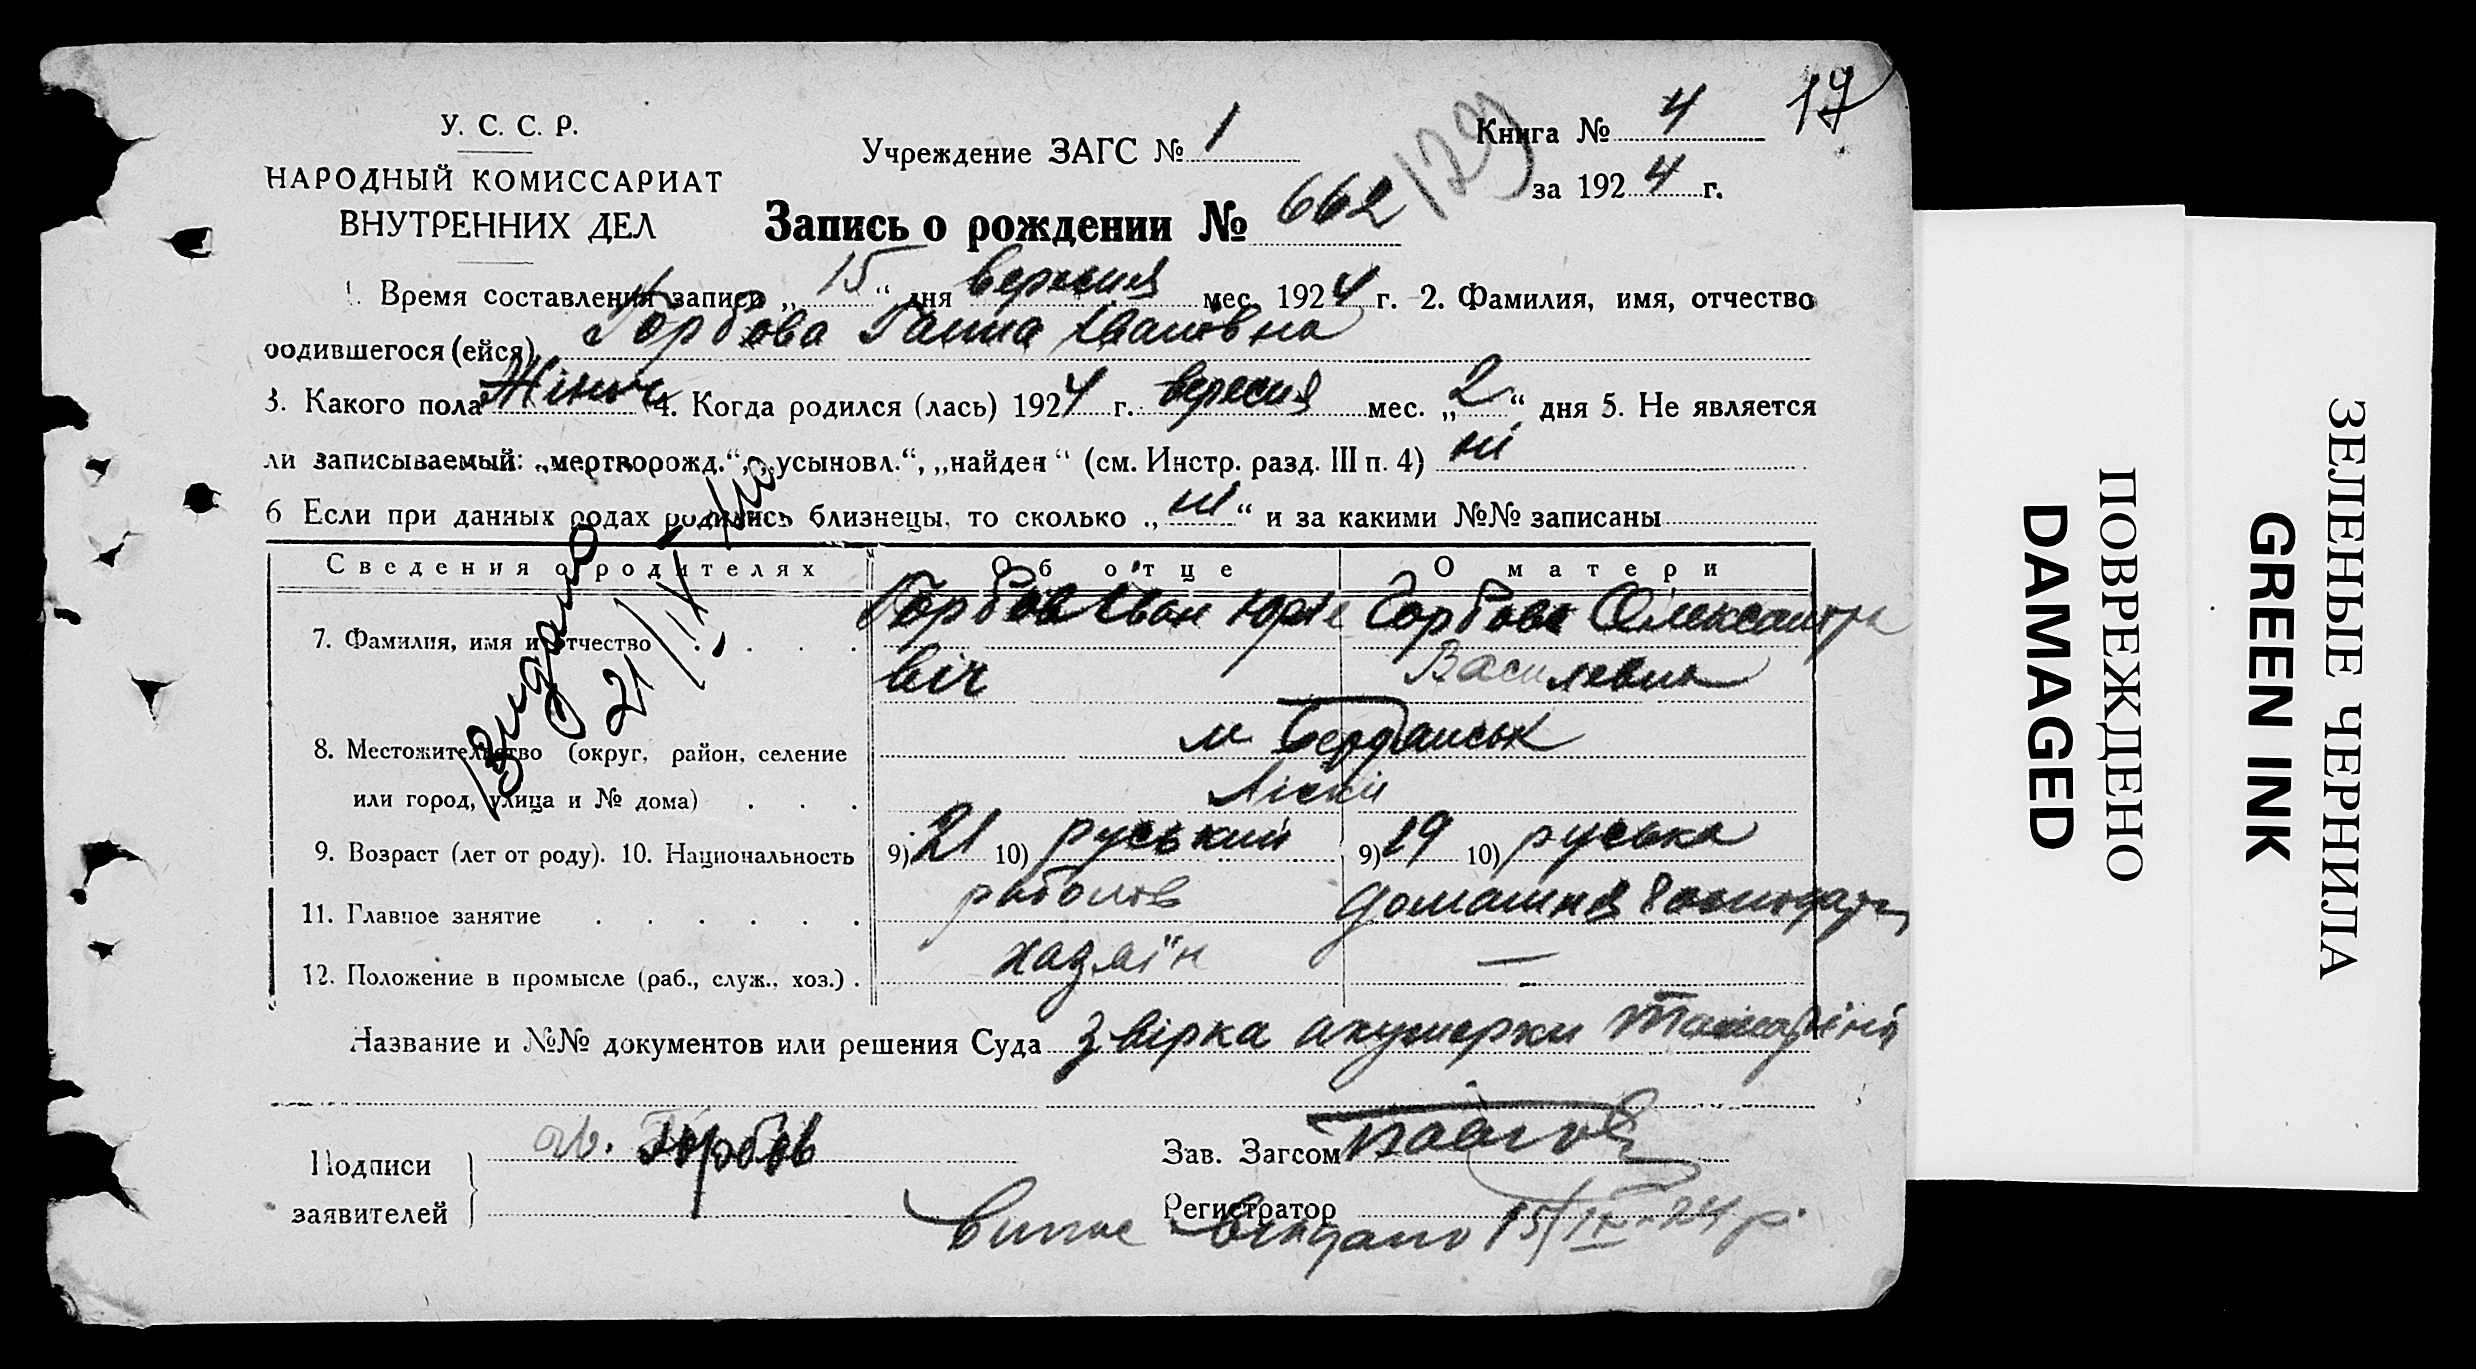 17
У. С. С. Р.
НАРОДНЫЙ КОМИССАРИАТ
ВНУТРЕННИХ ДЕЛ
Учреждение ЗАГС № 1
Книга № 4
за 1924 г.
129
Запись о рождении № 662
1. Время составления записи „15“ дня вересня мес. 1924 г. 2. Фамилия, имя, отчество
родившегося (ейся) Горбова Ганна Івановна
3. Какого пола Жіноч 4. Когда родился (лась) 1924 г. вересня мес. „2“ дня 5. Не является
ли записываемый: „мертворожд.“, „усыновл.“, „найден“ (см. Инстр. разд. III п. 4) ні
6 Если при данных родах родились близнецы, то сколько „ні“ и за какими №№ записаны
Сведения о родителях Об отце О матери
7. Фамилия, имя и отчество . . . . Горбов Іван Юріе Горбова Олександра
віч Василевна
8. Местожительство (округ, район, селение м. Бердянськ
или город, улица и № дома) . . . Ліски
9. Возраст (лет от роду). 10. Национальность 9) 21 10) руський 9) 19 10) руська
11. Главное занятие . . . . . . риболов домашня господарка
12. Положение в промысле (раб., служ., хоз.) . хазяїн —
Видано
21/IX
Название и №№ документов или решения Суда звірка акушерки
Подписи
заявителей
Горбов
Зав. Загсом
Регистратор
видано 15/IX-24 р.
ПОВРЕЖДЕНО
DAMAGED
ЗЕЛЕНЫЕ ЧЕРНИЛА
GREEN INK